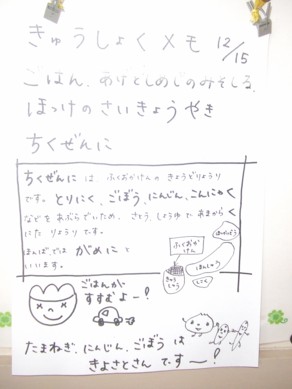 きゅうしょくメモ 12/15
ごはん、あげとしめじのみそしる、
ほっけのさいきょうやき
ちくぜんに
ちくぜんに は ふくおかけんの きょうどりょうり
です。とりにく、ごぼう、にんじん、こんにゃく
などを あぶらでいため、さとう、しょうゆで あまからく
にた りょうりです。
ほんばでは がめにと
いいます。
ふくおか
けん
ほっかいどう
ほんしゅう
きゅう
しゅう
しこく
ごはんが
すすむよー!
たまねぎ、にんじん、ごぼう は
きよさとさん でーす!